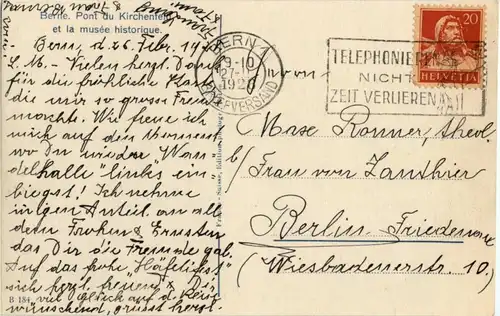 Berne. Pont du Kirchenfeld
et la musée historique.
Bern, d. 26. Febr. 192
L. M. - Vielen herzl. Dank
für die fröhliche Karte
die mir so grosse Freude
machte. Wie freue ich
mich auf den Moment
wo Du wieder "Wan-
delhalle links ein-
biegst! Ich nehme
innigen Anteil an all
dem Frohen & Ernsten
das Dir die Fremde gab.
Auf das frohe "Häfelifest"
sich herzl. freuend & Dir
viel Glück auf d. Reise
wünschend, grüsst herzl.
B 184
BERN 1
9-10
27. II
192
BRIEFVERSAND
TELEPHONIEREN
NICHT
ZEIT VERLIEREN
20
HELVETIA
Max Ronner, theol.
b/ Frau von Zanthier
Berlin-Friedenau
(Wiesbadenerstr. 10.)